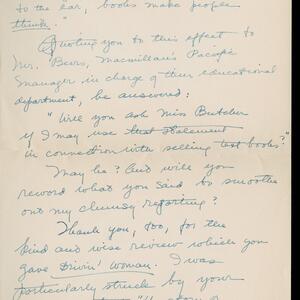 to the ear, books make people
think."
Quoting you to this effect to
Mr. Beers, Macmillan's Pacific
Manager in charge of their educational
department, he answered:
"Will you ask Miss Butcher
if I may use that statement
in connection with selling text books?"
May he? And will you
reword what you said to smoothe
out my clumsy reporting?
Thank you, too, for the
kind and wise review which you
gave Divin' Woman. I was
particularly struck by your